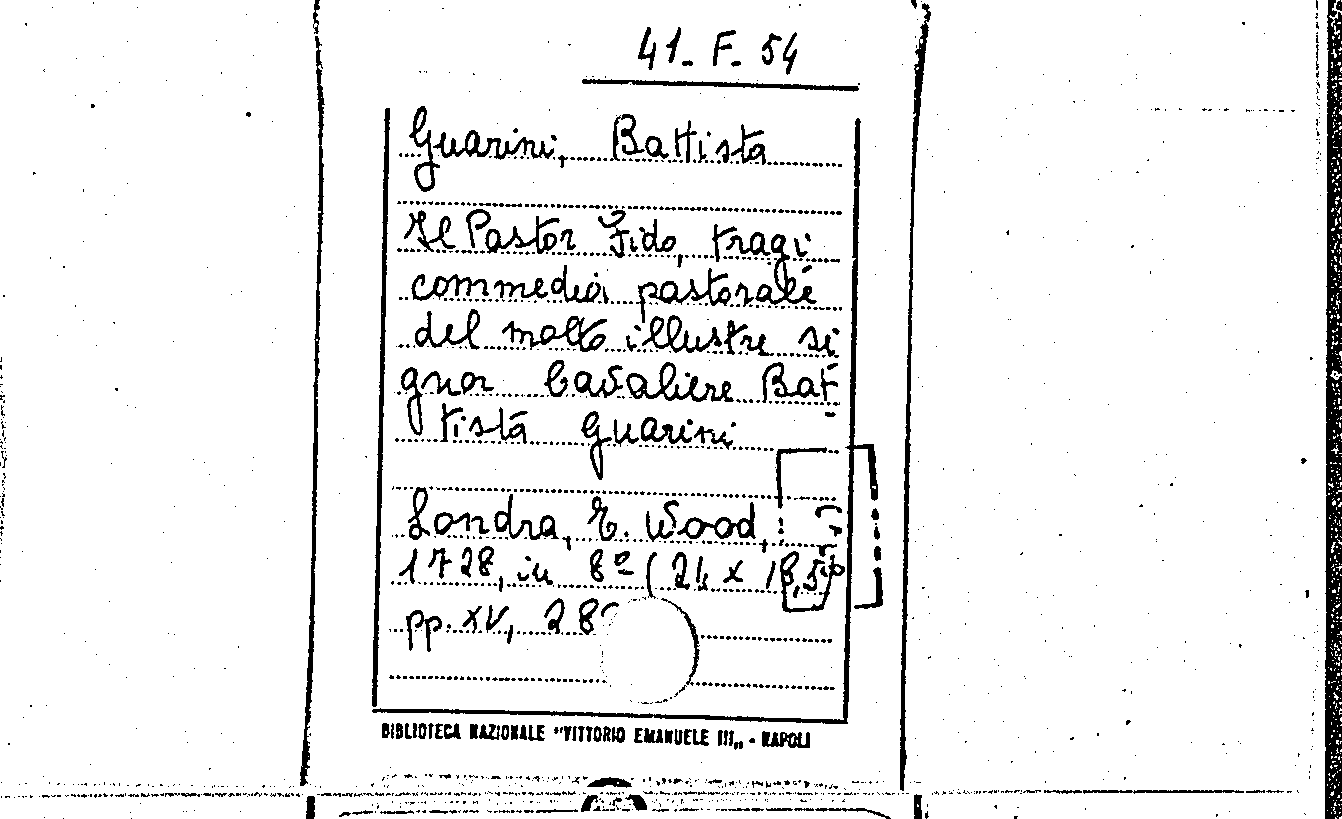 41- F- 54
Guarini, Battista
Il Pastor Fido, tragi
commedia pastorale
del molto illustre si
gnor Cavaliere Bat
tista Guarini
Londra, E. Wood,
1728, in 8º (24 x 18,5)
pp. XV,
BIBLIOTECA NAZIONALE "VITTORIO EMANUELE III„ - NAPOLI